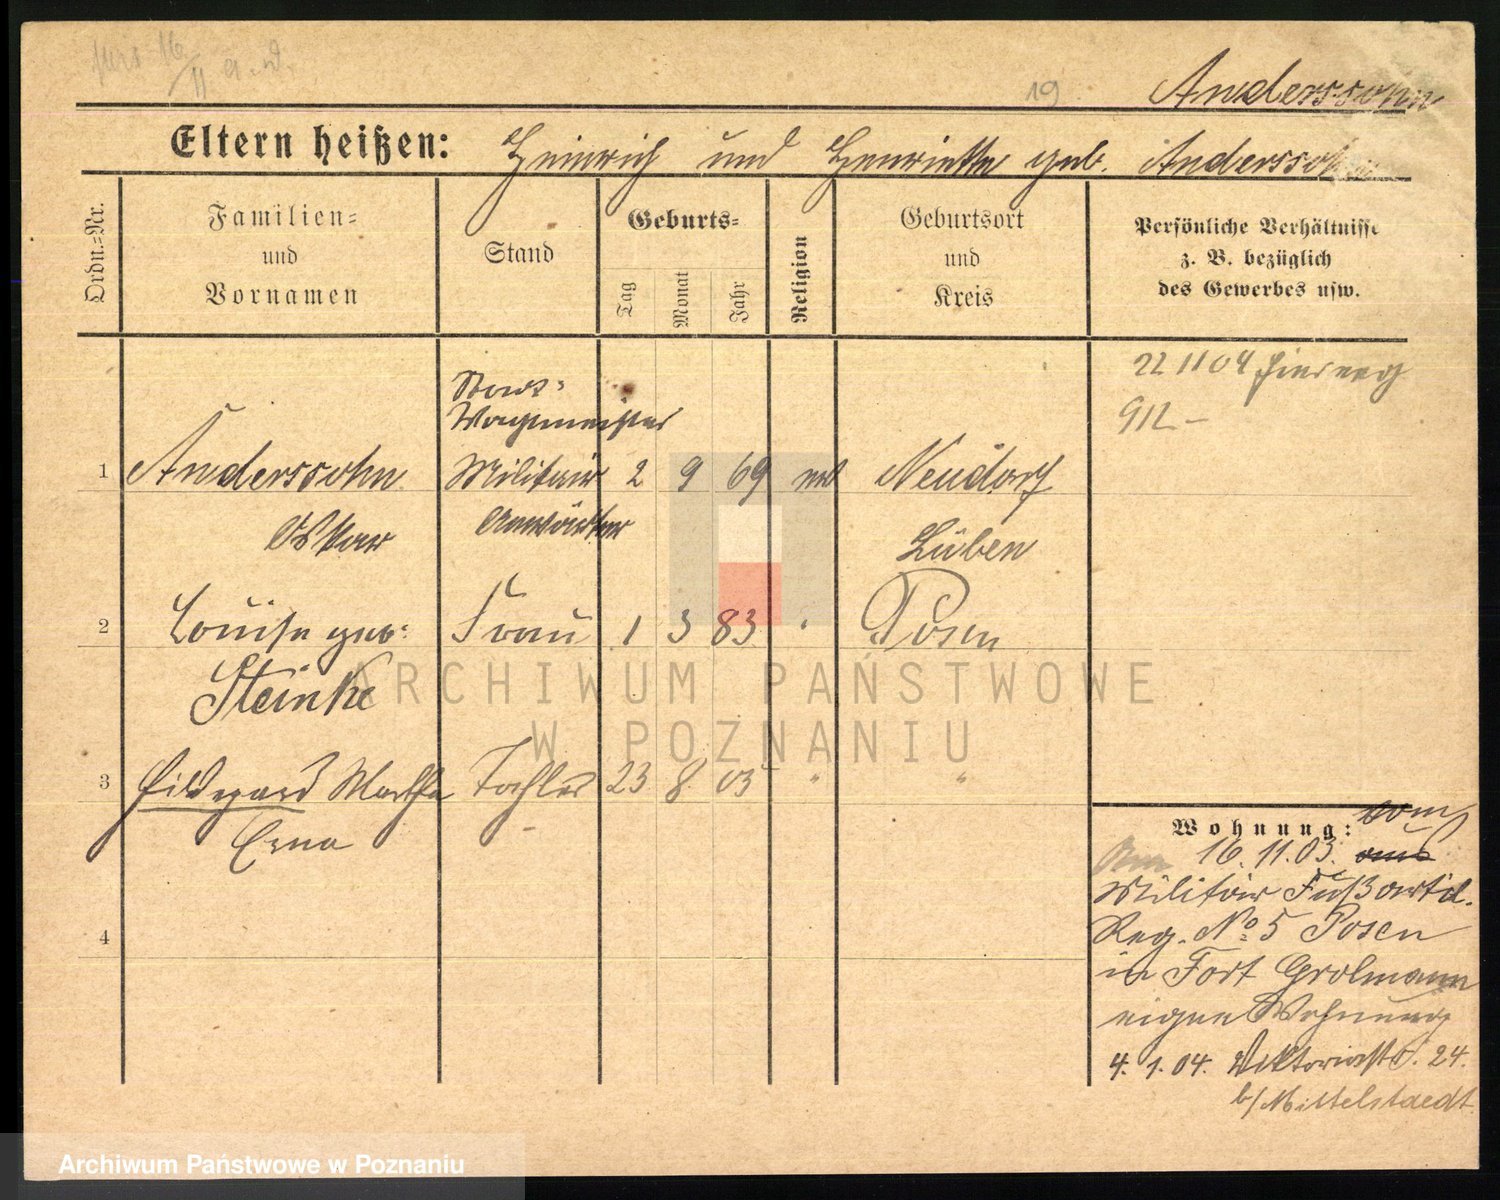 16/11
19
Anderssohn
Eltern heißen: Heinrich und Henriette geb. Anderssohn
Ordn.=Nr.
Familien=
und
Vornamen
Stand
Geburts=
Tag
Monat
Jahr
Religion
Geburtsort
und
Kreis
Persönliche Verhältnisse
z. B. bezüglich
des Gewerbes usw.
22 11 04
912 -
Wagemeister
1 Anderssohn Militair 2 9 69 Neudorf
Oskar Anwärter Lüben
2 Louise geb: Frau 1 3 83 " Posen
Steinke
3 Hildegard Martha Tochter 23 8 03 " "
Erna
4
Wohnung: vom
16.11.03. aus
Militär Fußartil.
Reg. No 5 Posen
in Fort Grolmann
eigene Wohnung
4. 1. 04. Viktoriastr. 24.
b/ Mittelstaedt
ARCHIWUM PAŃSTWOWE
W POZNANIU
Archiwum Państwowe w Poznaniu